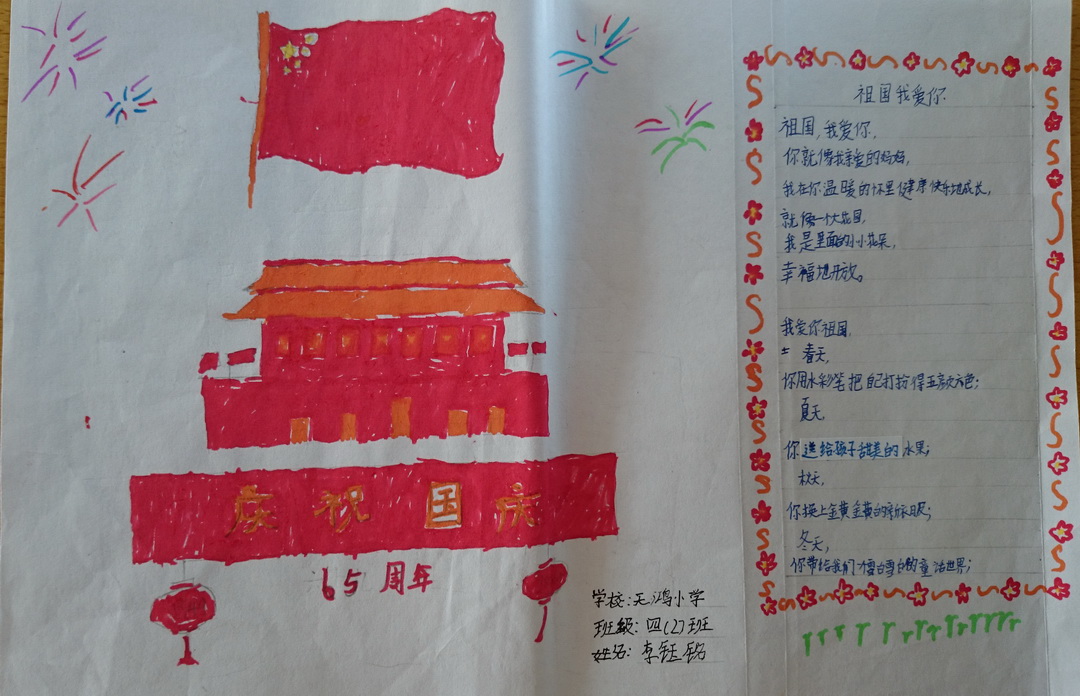 庆祝国庆
65周年
学校:天鸿小学
班级:四(2)班
姓名:李钰铭
祖国我爱你
祖国,我爱你,
你就像我亲爱的妈妈,
我在你温暖的怀里健康快乐地成长,
就像一个大花园,
我是里面的小花朵,
幸福地开放。
我爱你祖国,
春天,
你用水彩笔把自己打扮得五颜六色;
夏天,
你送给孩子甜美的水果;
秋天,
你换上金黄金黄的新衣服;
冬天,
你带给我们雪白雪白的童话世界;